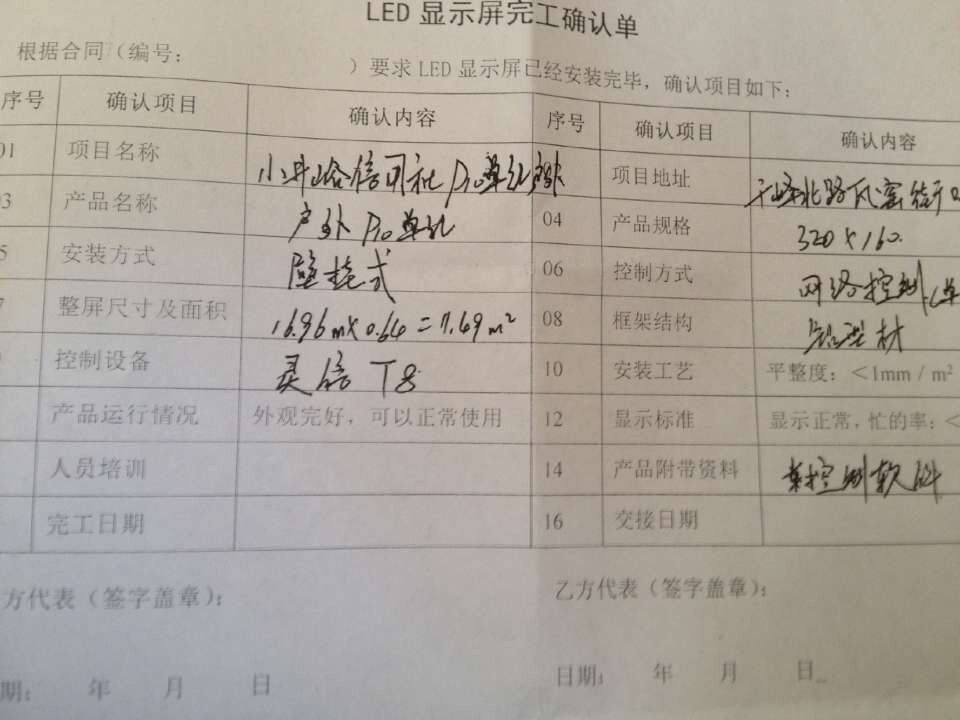 LED 显示屏完工确认单
根据合同（编号： ）要求 LED 显示屏已经安装完毕，确认项目如下：
序号 确认项目 确认内容 序号 确认项目 确认内容
01 项目名称 小井峪信用社 P10单红户外 项目地址 千峰北路风窑街口
03 产品名称 户外 P10单红 04 产品规格 320×160.
5 安装方式 壁挂式 06 控制方式 网络控制(单
7 整屏尺寸及面积 16.96m×0.64=11.49m² 08 框架结构 铝型材
控制设备 灵信 T8 10 安装工艺 平整度：＜1mm / m²
产品运行情况 外观完好，可以正常使用 12 显示标准 显示正常，忙的率：＜
人员培训 14 产品附带资料 控制软件
完工日期 16 交接日期
方代表（签字盖章）： 乙方代表（签字盖章）：
期： 年 月 日 日期： 年 月 日